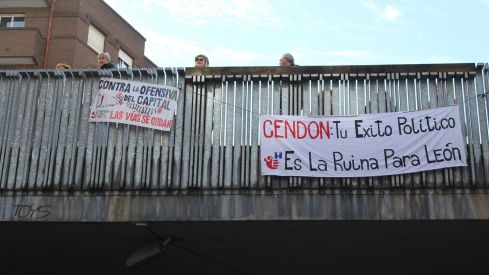 CONTRA LA OFENSIVA
DEL CAPITAL
LAS VÍAS SE QUEDAN
CENDON: Tu Exito Politico
Es La Ruina Para León